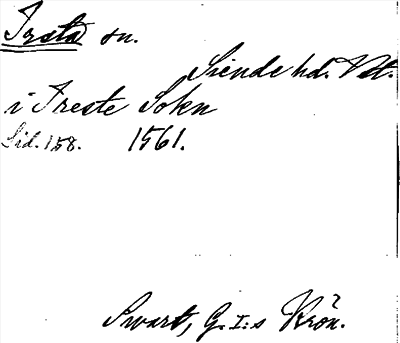 Irsta sn.
Siende hd. Vstm.
i Ireste Sokn
Sid. 158. 1561.
Swart, G. I:s Krön.